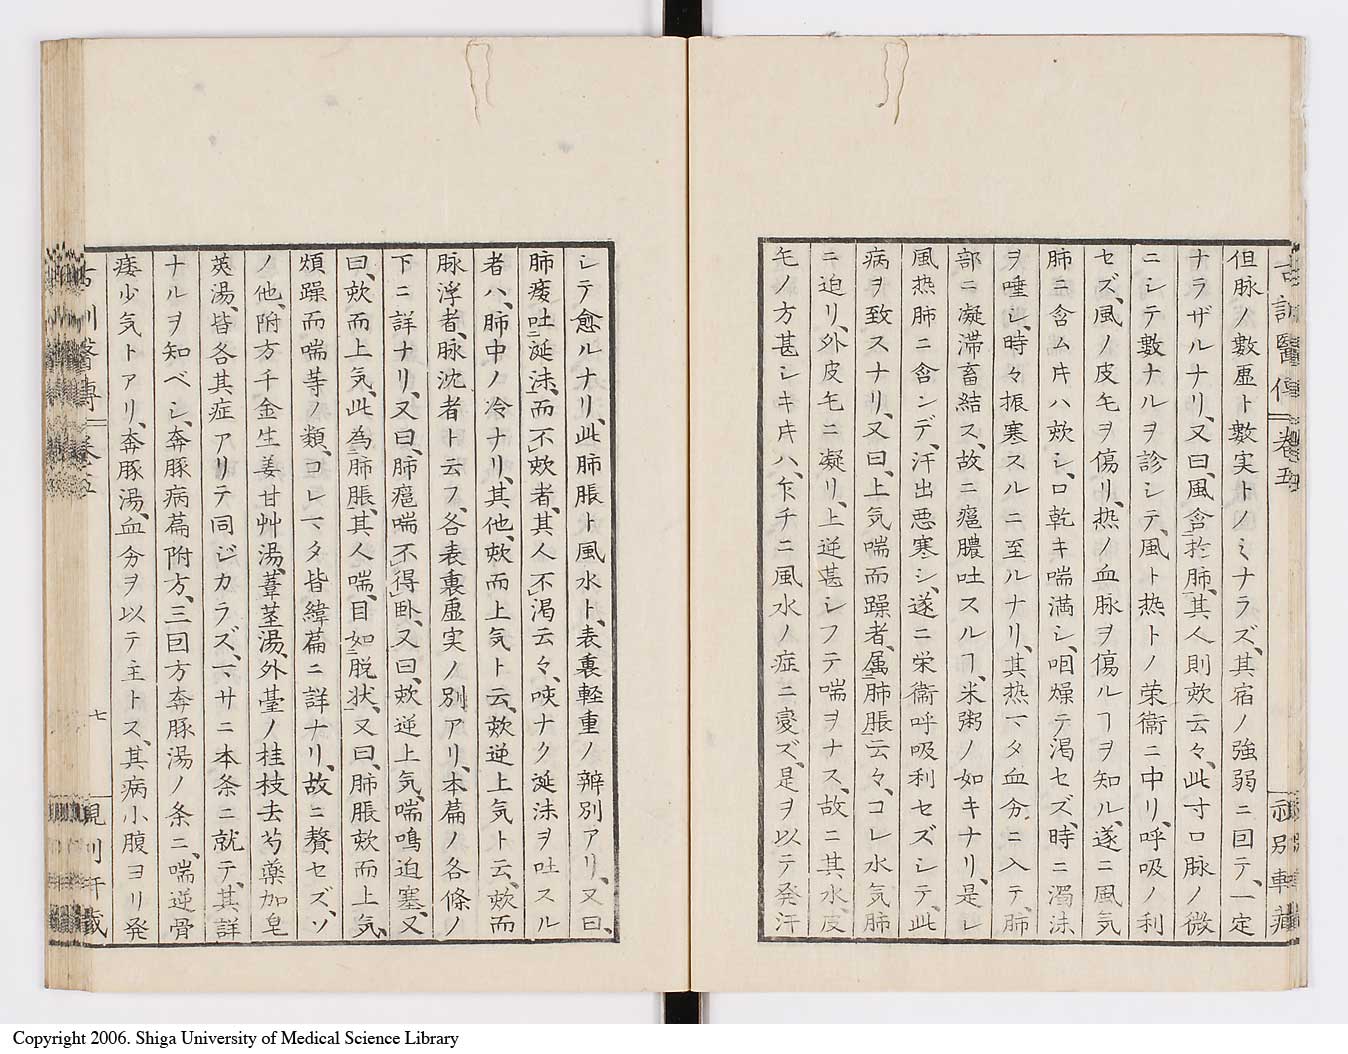 但脉ノ數虚ト數実トノミナラズ、其宿ノ強弱ニ回テ、一定
ナラザルナリ、又曰、風含於肺、其人則欬云々、此寸口脉ノ微
ニシテ數ナルヲ診シテ、風ト热トノ荣衞ニ中リ、呼吸ノ利
セズ、風ノ皮毛ヲ傷リ、热ノ血脉ヲ傷ルヿヲ知ル、遂ニ風気
肺ニ含ムキハ欬シ、口乾キ喘満シ、咽燥テ渇セズ、時ニ濁沫
ヲ唾シ、時々振寒スルニ至ルナリ、其热マタ血分ニ入テ、肺
部ニ凝滞畜結ス、故ニ癰膿吐スルヿ、米粥ノ如キナリ、是レ
風热肺ニ含ンデ、汗出悪寒シ、遂ニ栄衞呼吸利セズシテ、此
病ヲ致スナリ、又曰、上気喘而躁者、属肺脹云々、コレ水気肺
ニ迫リ、外皮毛ニ凝リ、上逆甚シフテ喘ヲナス、故ニ其水、皮
毛ノ方甚シキキハ、乍チニ風水ノ症ニ変ズ、是ヲ以テ発汗
シテ愈ルナリ、此肺脹ト風水ト、表裏軽重ノ辨別アリ、又曰、
肺痿吐涎沫、而不欬者、其人不渇云々、咳ナク涎沫ヲ吐スル
者ハ、肺中ノ冷ナリ、其他、欬而上気ト云、欬逆上気ト云、欬而
脉浮者、脉沈者ト云フ、各表裏虚実ノ別アリ、本篇ノ各條ノ
下ニ詳ナリ、又曰、肺癰喘不得臥、又曰、欬逆上気、喘鳴迫塞、又
曰、欬而上気、此為肺脹、其人喘、目如脱状、又曰、肺脹欬而上気、
煩躁而喘等ノ類、コレマタ皆緯篇ニ詳ナリ、故ニ贅セズ、ソ
ノ他、附方千金生姜甘艸湯、葦茎湯、外臺ノ桂枝去芍薬加皂
莢湯、皆各其症アリテ同ジカラズ、マサニ本条ニ就テ、其詳
ナルヲ知ベシ、奔豚病篇附方、三回方奔豚湯ノ条ニ、喘逆骨
痿少気トアリ、奔豚湯、血分ヲ以テ主トス、其病小腹ヨリ発
古訓醫傳 卷五
七